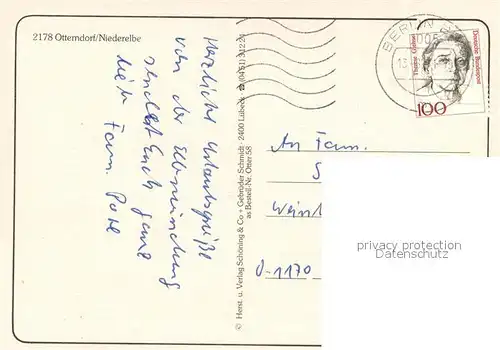 2178 Otterndorf/Niederelbe
Herzliche Urlaubsgrüße
von der Elbmündung
sendet Euch ganz
lieb Fam.
© Herst. u. Verlag Schöning & Co + Gebrüder Schmidt · 2400 Lübeck · ☎ (04 51) 3 12 24
as Bestell-Nr. Otter 58
BERLIN
Deutsche Bundespost
Therese Giehse
100
An Fam.
S
Weinb
O-1170
privacy protection
Datenschutz